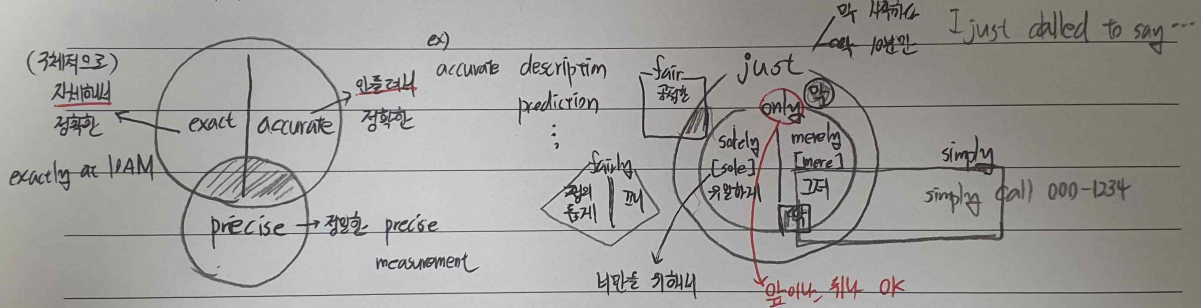 (구체적으로)
자세해서
정확한
exact
accurate
안틀려서
정확한
exactly at 10AM
precise
정밀한
precise
measurement
ex)
accurate description
prediction
fair
공정한
fairly
정의
롭게
꽤
just
막 시작하다
딱 10분만
I just called to say…
only
막
solely
[sole]
유일하게
merely
[mere]
그저
딱
simply
simply call 000-1234
너만을 위해서
앞이나, 뒤나 OK